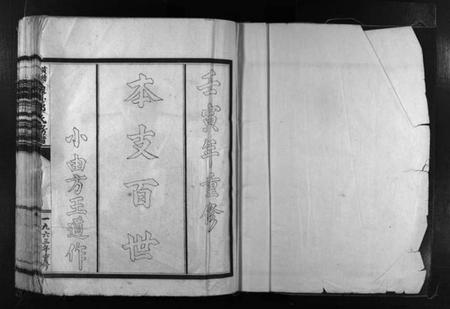 壬寅年重修
本支百世
小由方王道作
一九六三年重修